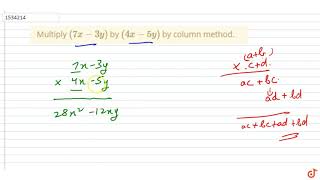 1534214
Multiply (7x − 3y) by (4x − 5y) by column method.
7x-3y
× 4x -5y
28x² -12xy
(a+b)
× c+d
ac + bc
ad + bd
ac + bc + ad + bd